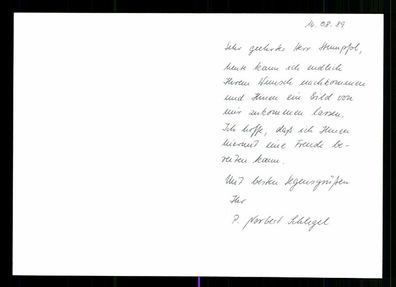 14.08.89
Sehr geehrter Herr
heute kann ich endlich
Ihrem Wunsch nachkommen
und Ihnen ein Bild von
mir zukommen lassen.
Ich hoffe, daß ich Ihnen
hiermit eine Freude be-
reiten kann.
Mit besten Segensgrüßen
Ihr
P. Norbert Schlegel